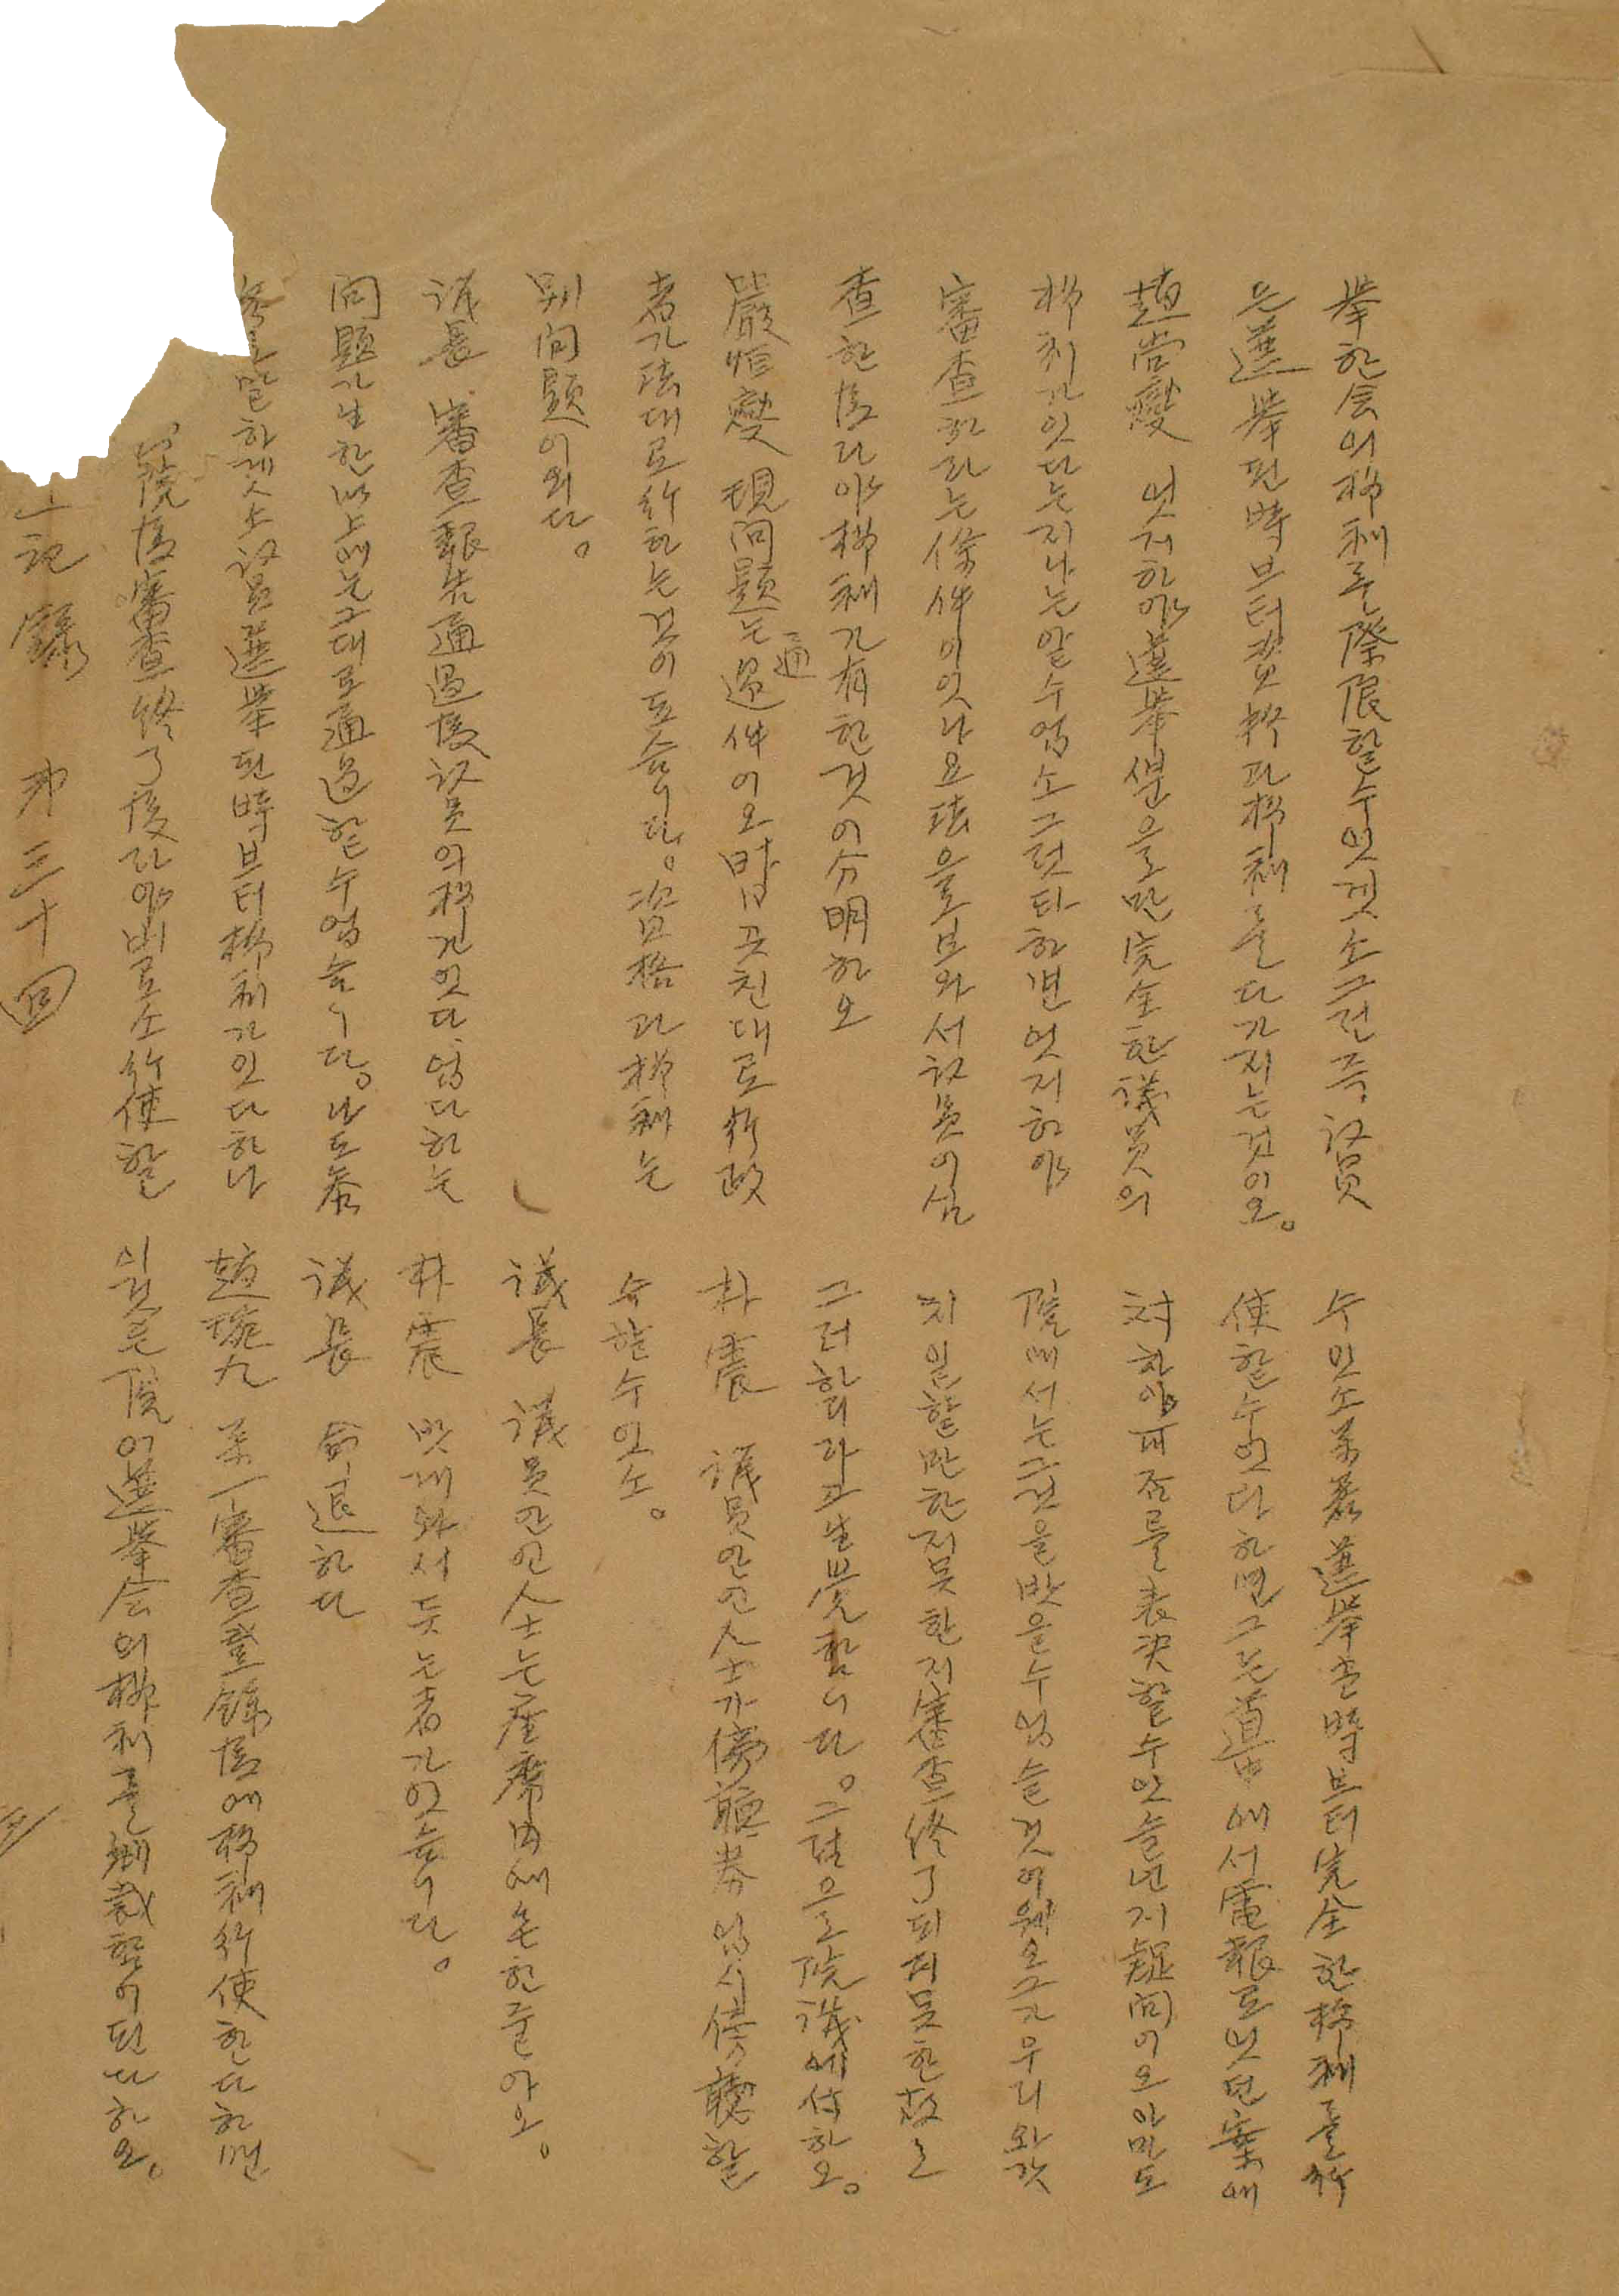 擧한会의權利를際限할수잇겟소그런즉議員
은選擧된時브터資格과權利를다가지는것이오。
趙尙燮 엇지하야選擧人分을만完全한議員의
權利가잇다는지나는알수업소그럿타하면엇지하야
審查하라는條件이잇나요法을보와서議員이심
查한後라야權利가有한것이分明하오
嚴恒燮 現問題는通過件이오 말곳친대로行政
者가法대로行하는것이도슴니다。資格과權利는
別問題이외다。
議長 審查報告通過後議員의權가잇다업다하는
問題가生한以上에는그대로通過할수업슴니다。나도參
考를말하겟소議員選擧된時브터權利가잇다하나
院後審查終了後라야비로소行使할
수잇소萬若選擧된時브터完全한權利를行
使할수잇다하면그는道中에서電報로엇던案에
対하야可否를表決할수잇슬넌지疑問이오아마도
院에서는그것을밧을수업슬것이웨요그가우리와갓
치일할만한지못한지審查終了되지못한故로
그러하리라고生覺합니다。그럼으로院議에付하오。
朴震 議員안인人士가傍聽券업시傍聽할
수할수잇소。
議長 議員안인人士는座席內에못한줄아오。
朴震 밧게와서듯는者가잇슴니다。
議長 命退하다
趙琬九 萬一審查登錄後에權利行使한다하면
이것은院이選擧会의權利를制裁함이된다하오。
記錄 第三十回